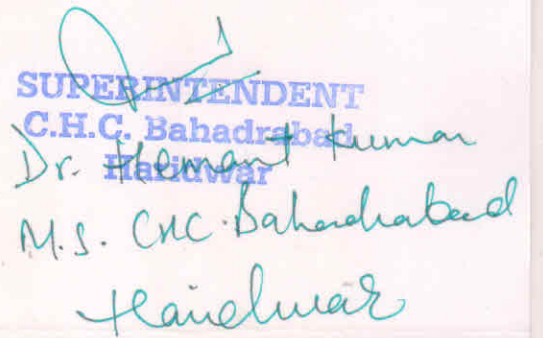 SUPERINTENDENT
C.H.C. Bahadrabad
Haridwar
Dr. Hemant Kumar
M.S. CHC. Bahadrabad
Haridwar